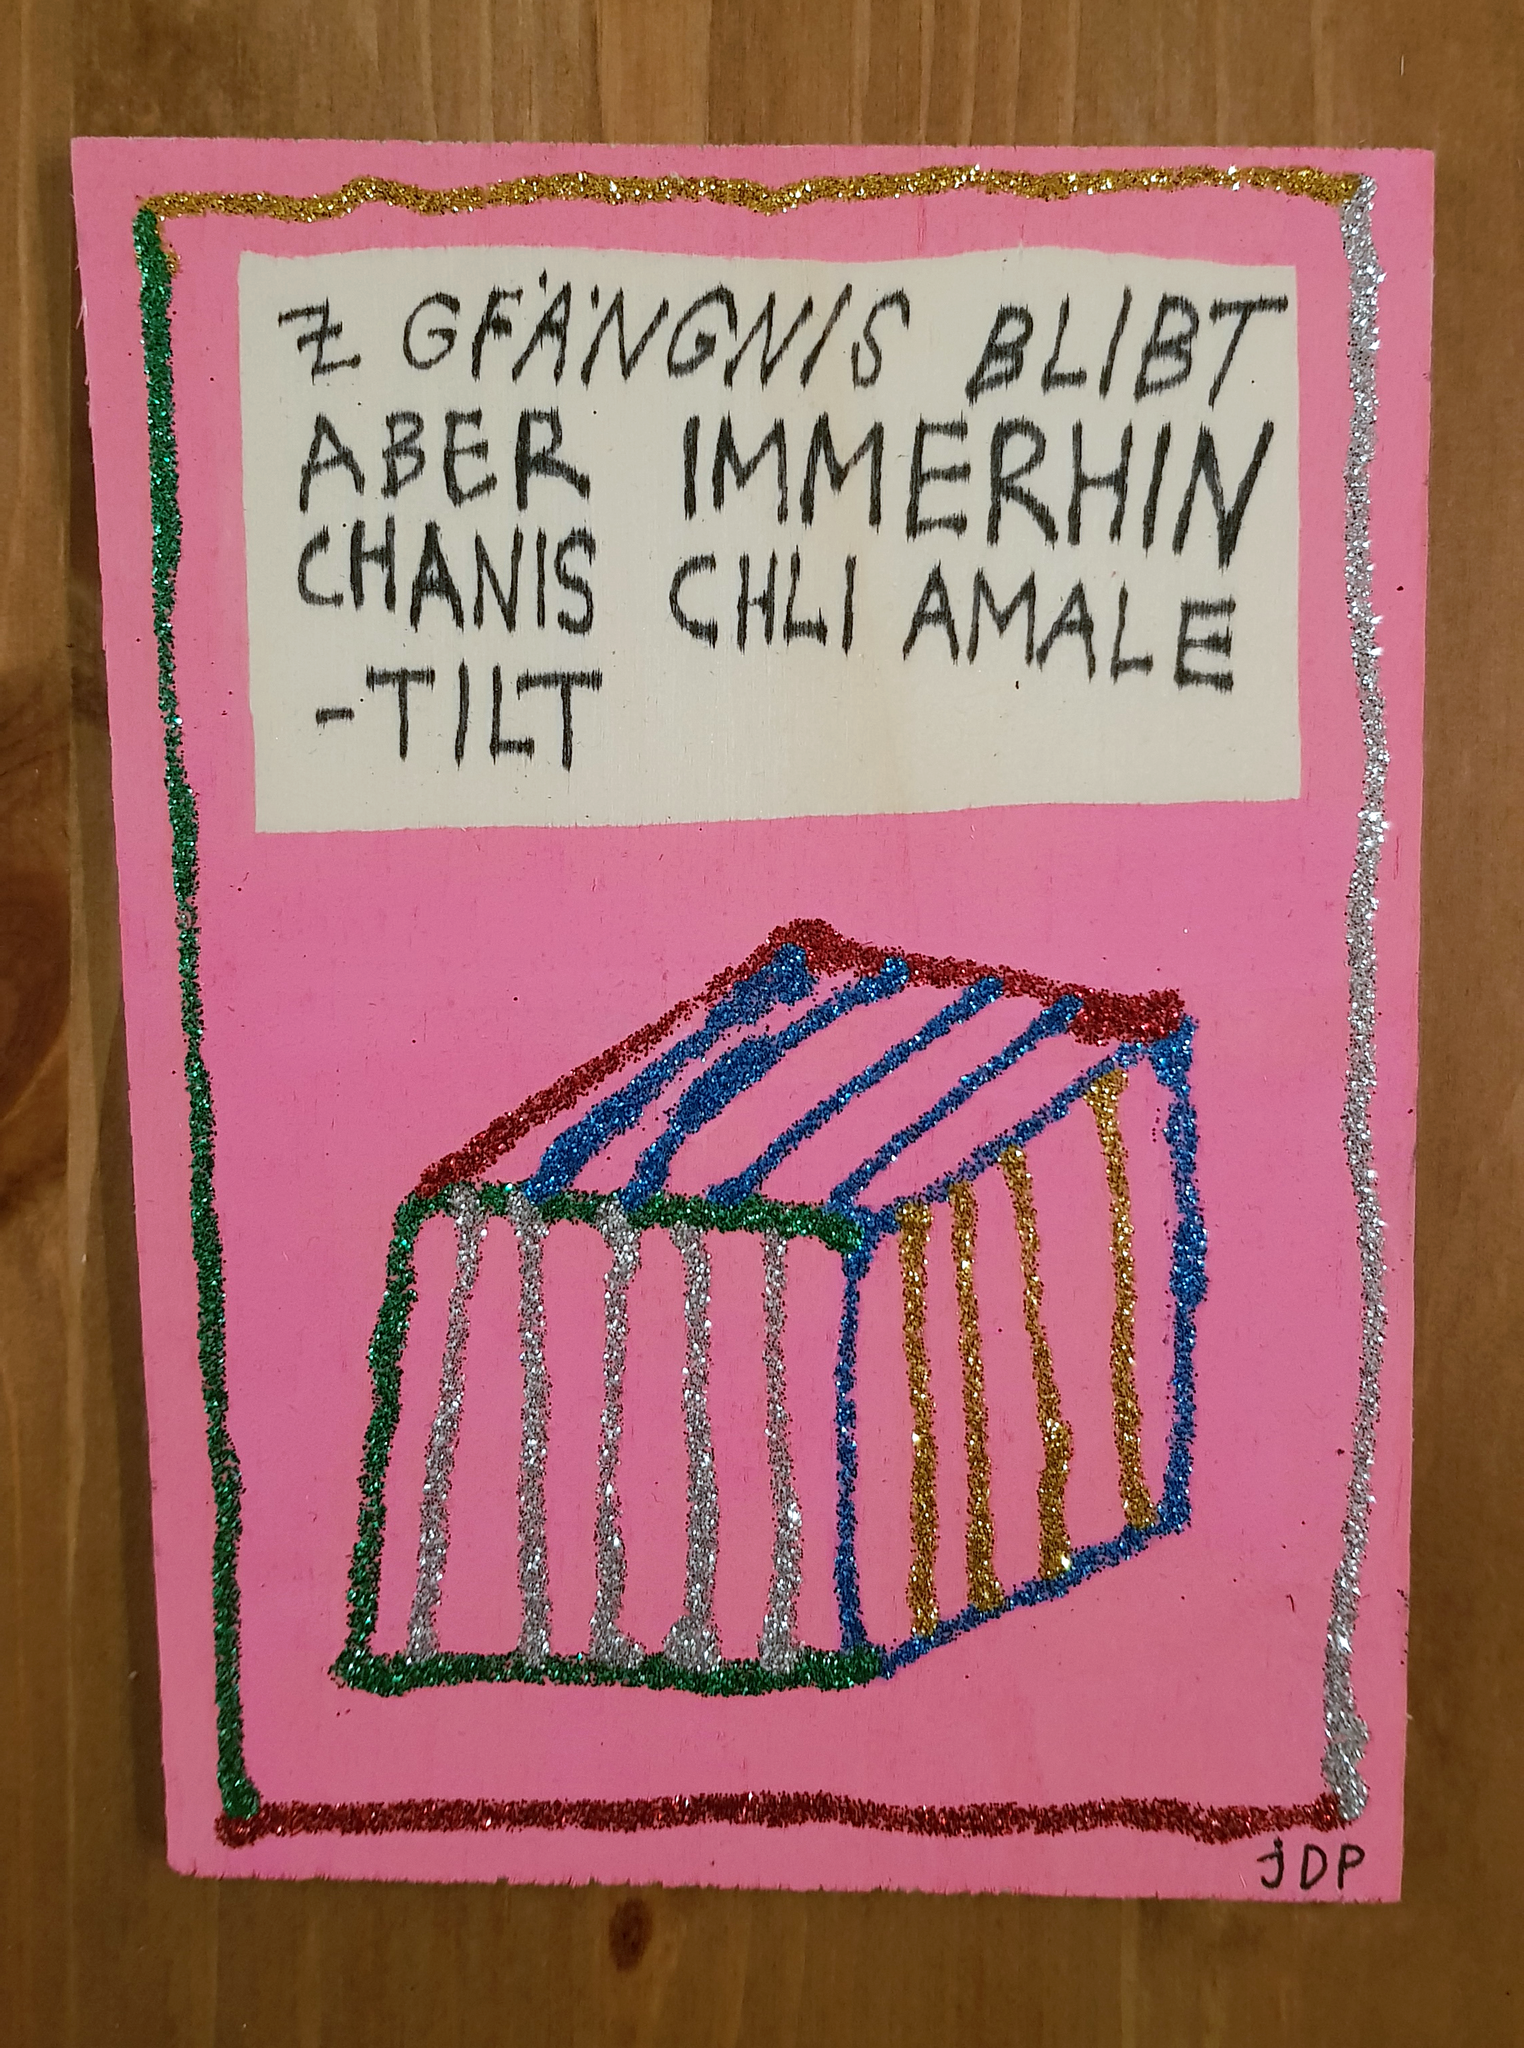 Z GFÄNGNIS BLIBT
ABER IMMERHIN
CHANIS CHLI AMALE
-TILT
jDP